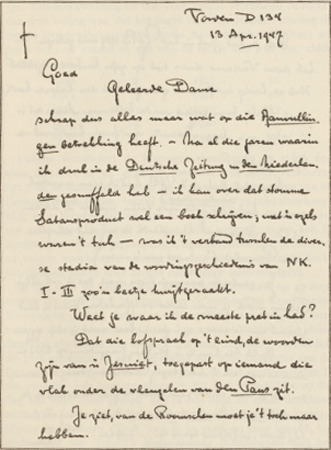 Vorden D 134
13 Apr. 1947
Goed
Geleerde Dame
schrap dus alles maar wat op die Aanvullin-
gen betrekking heeft. – Na al die jaren waarin
ik druk in de Deutsche Zeitung in den Niederlan-
den gesnuffeld heb – ik kan over dat stomme
Satansproduct wel een boek schrijven; wat 'n ezels
waren 't toch – was ik 't verband tusschen de diver-
se stadia van de wordingsgeschiedenis van NK.
I - III zoo'n beetje kwijtgeraakt.
Weet je waar ik de meeste pret in had?
Dat die lofspraak op 't eind, de woorden
zijn van 'n Jesuiet, toegepast op iemand die
vlak onder de vleugelen van den Paus zit.
Je ziet, van de Roomschen moet je 't toch maar
hebben.